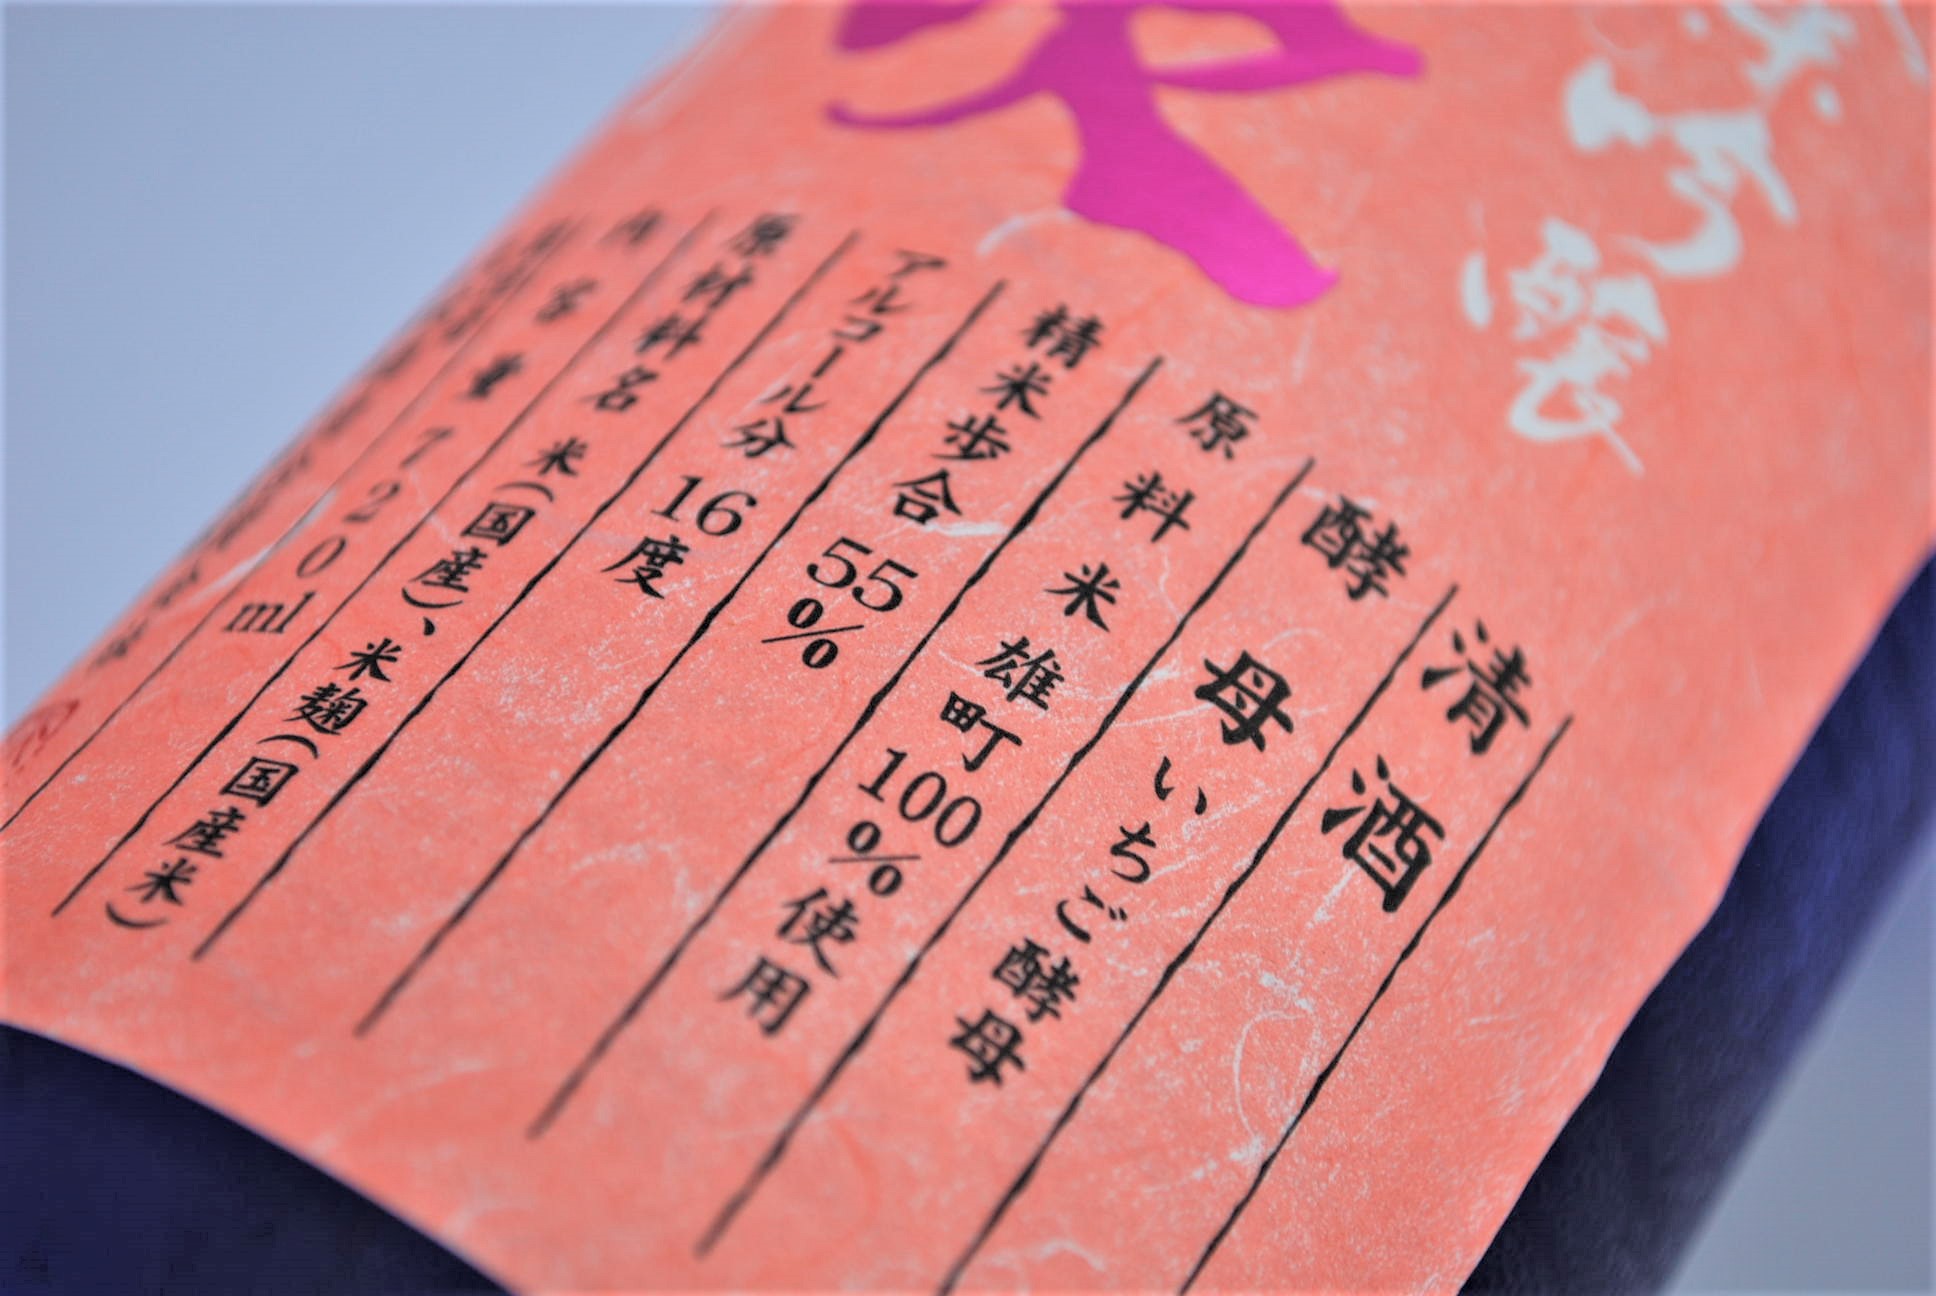 吟醸
清酒
酵母 いちご酵母
原料米 雄町100%使用
精米歩合 55%
アルコール分 16度
原材料名 米(国産)、米麹(国産米)
内容量 720ml